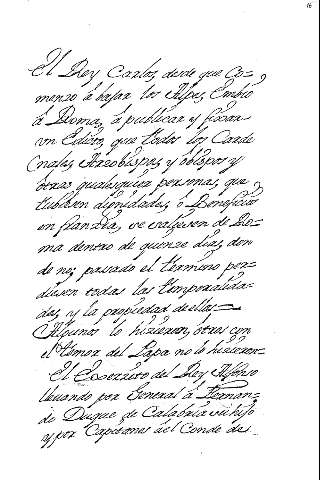 16
El Rey Carlos, desde que Co-
menzo á bajar los Alpes, Embio
á Roma, á publicar y fixar
un Edicto, que todos los Carde
nales, Arzobispos, y obispos y
otras qualesquier personas, que
tubiesen dignidades, ó Beneficios
en franzia, se saliesen de Ro-
ma dentro de quinze dias, don
de no; pasado el termino per-
diesen todas las temporalida-
des, y la propiedad de ellas
Algunos lo hizieron, otros con
el temor del Papa no lo hizieron
El Exercito del Rey Alfonso
llevando por General á Fernan-
do Duque de Calabria su hijo
y por Capitanes al Conde de